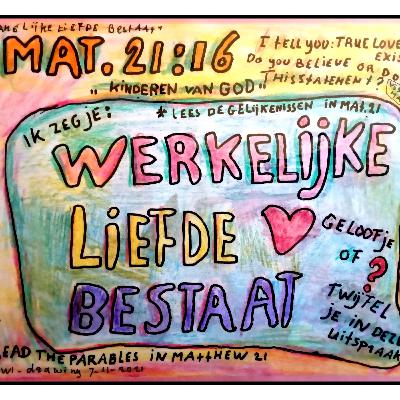 LIJKE LIEFDE BESTAAT"
MAT. 21:16
"KINDEREN VAN GOD"
I tell you: TRUE LOVE
EXIS
Do you BELIEVE OR DO
THIS STATEMENT?
IK ZEG JE:
* LEES DE GELIJKENISSEN IN MAT. 21
WERKELIJKE
LIEFDE
BESTAAT
GELOOF JE
OF
?
TWIJFEL
JE IN DEZE
UITSPRAAK
EAD THE PARABLES IN MATTHEW 21
drawing 7-11-2021